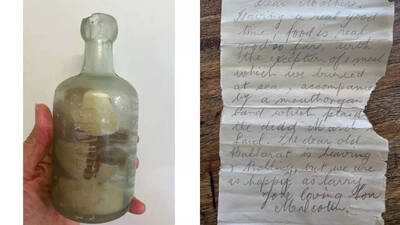 Dear Mother,
Having a real good
time, food is real
good so far, with
the exception of one meal
which we buried
at sea, accompanied
by a mouthorgan
band which played
the dead March
Saul. The dear old
Ballarat is heaving
& rolling, but we are
as happy as Larry.
Your loving son
Malcolm.